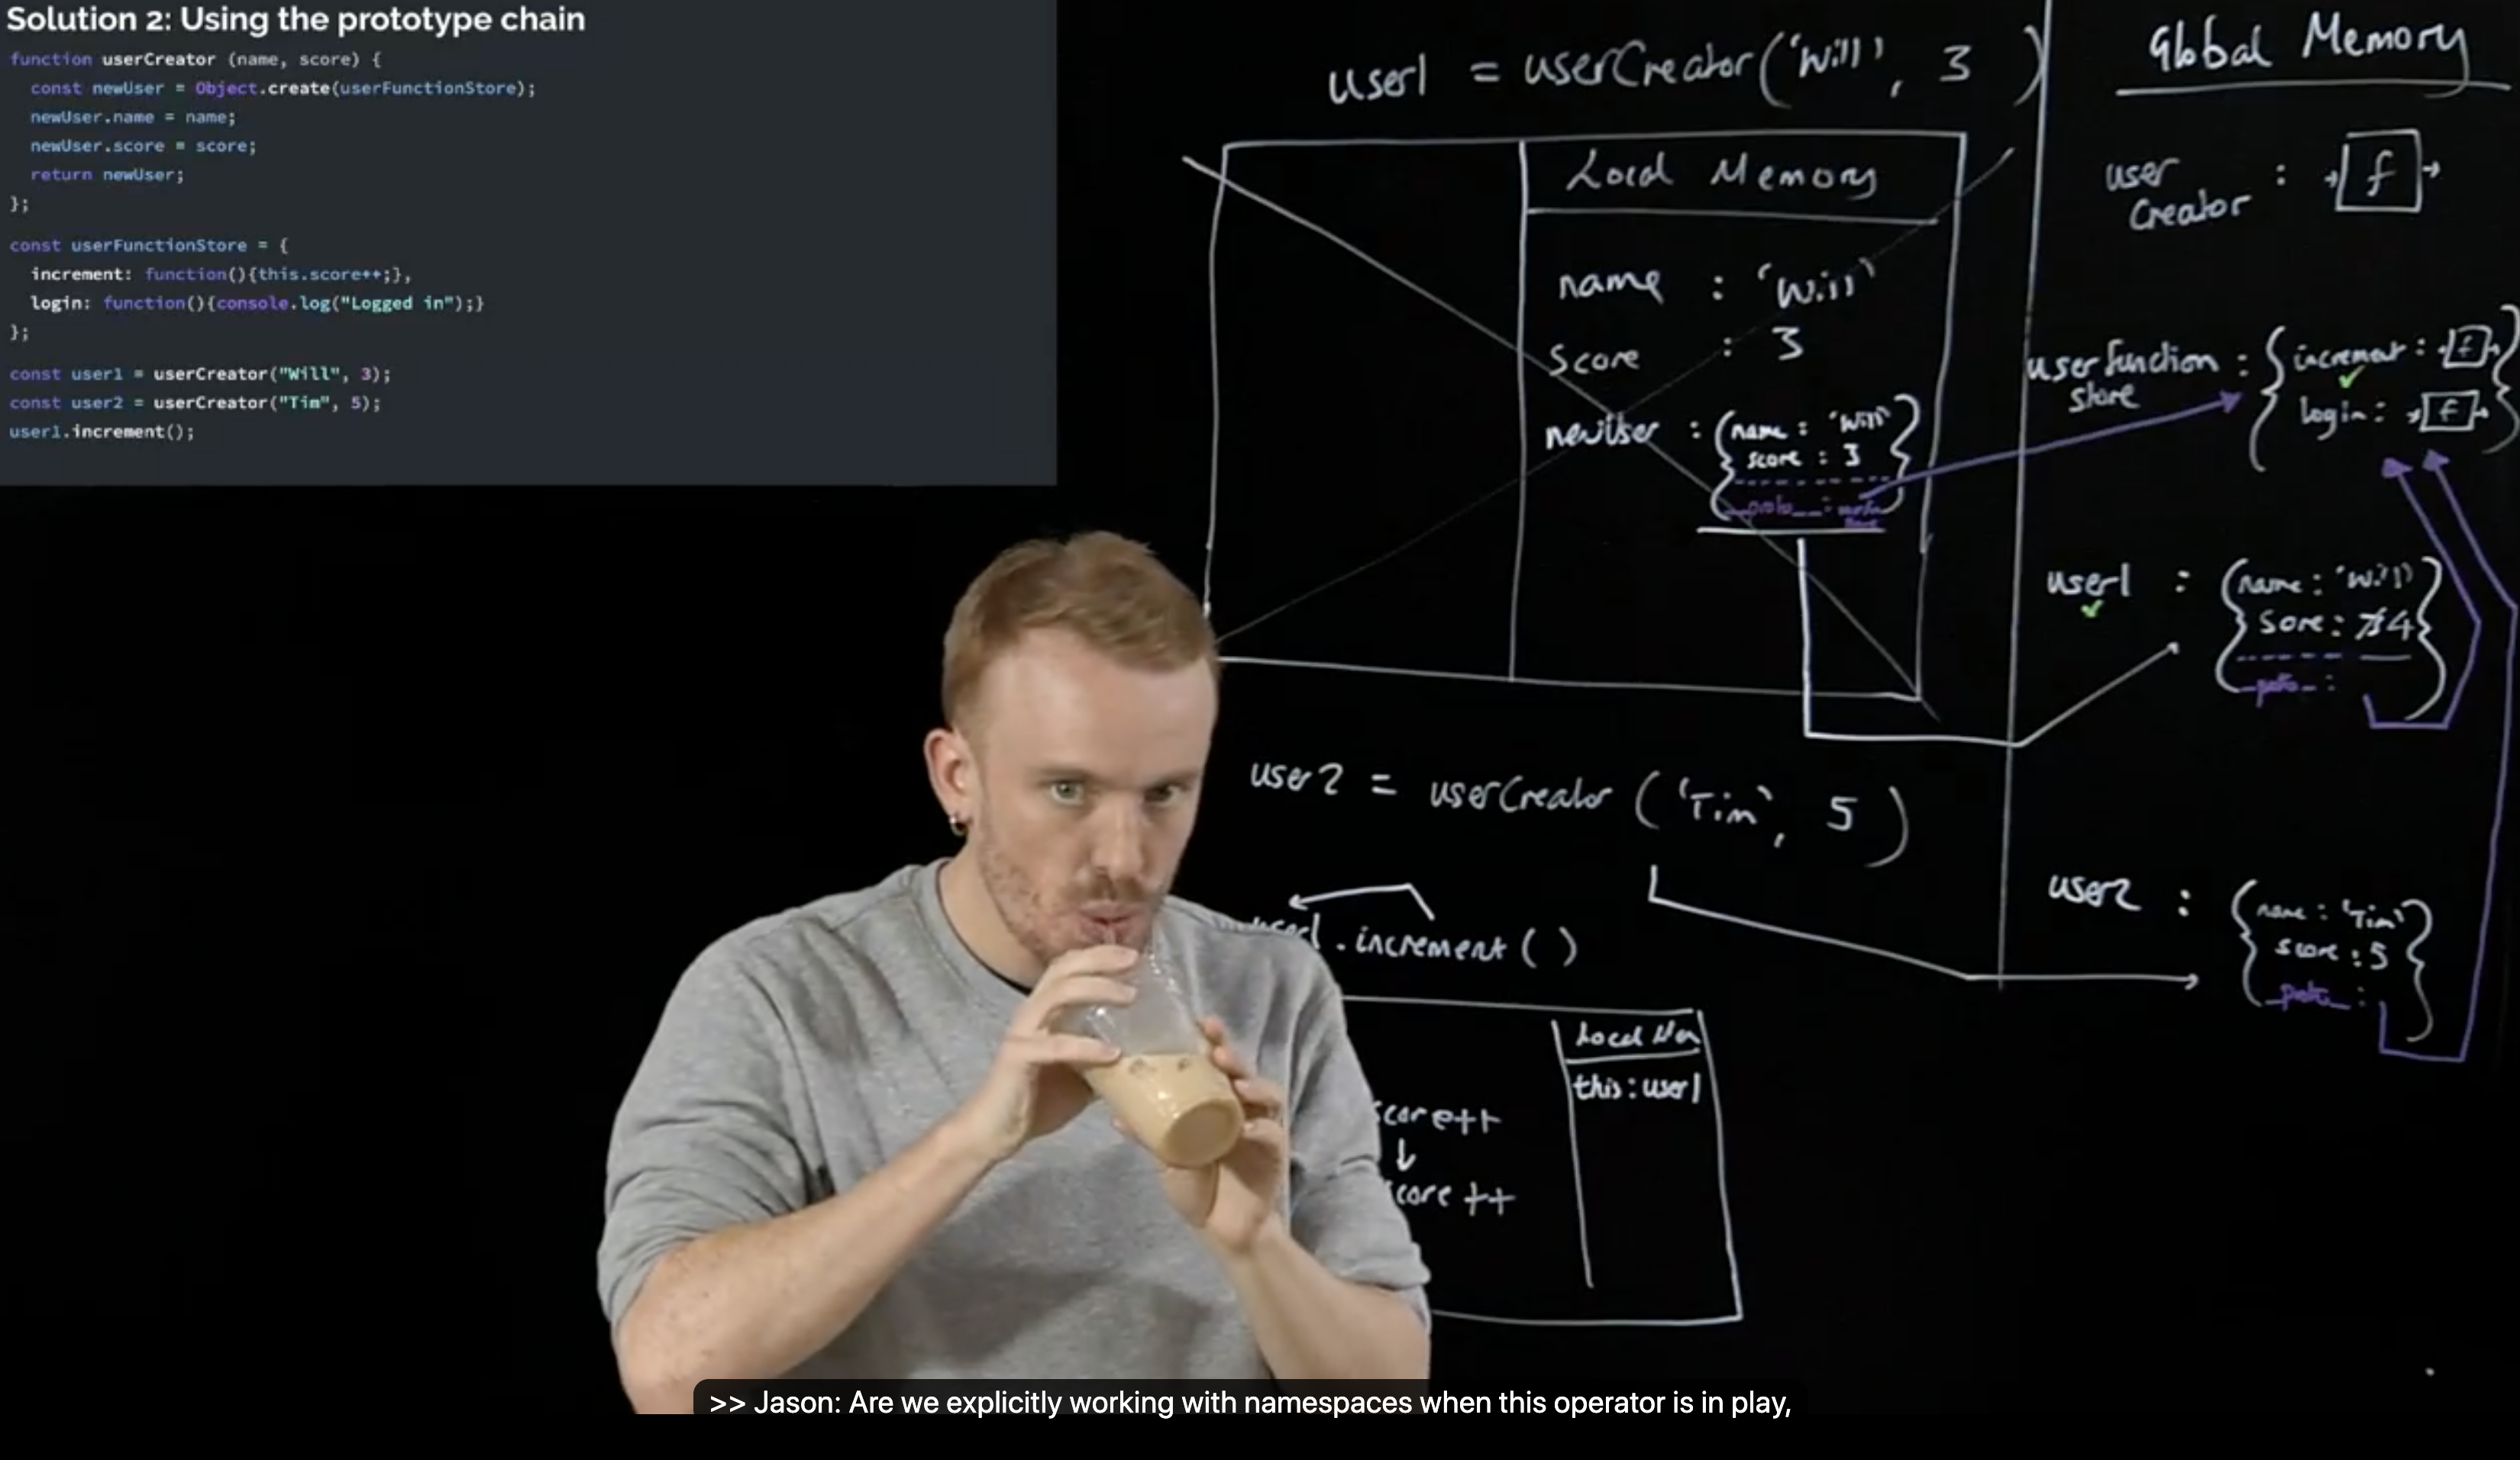 Solution 2: Using the prototype chain
function userCreator (name, score) {
const newUser = Object.create(userFunctionStore);
newUser.name = name;
newUser.score = score;
return newUser;
};
const userFunctionStore = {
increment: function(){this.score++;},
login: function(){console.log("Logged in");}
};
const user1 = userCreator("Will", 3);
const user2 = userCreator("Tim", 5);
user1.increment();
user1 = userCreator('Will', 3 )
Local Memory
name : 'Will'
score : 3
newUser : {name : 'Will'
score : 3
__proto__ :
}
user2 = userCreator ('Tim', 5 )
user1.increment ( )
Local Mem
this: user1
score++
↓
score ++
Global Memory
user
Creator : f
user function
store : { increment : f
login : f }
user1 : {name : 'Will'
Sore : 4
_proto_ :
}
user2 : {name : 'Tim'
score : 5
_proto_ :
}
>> Jason: Are we explicitly working with namespaces when this operator is in play,